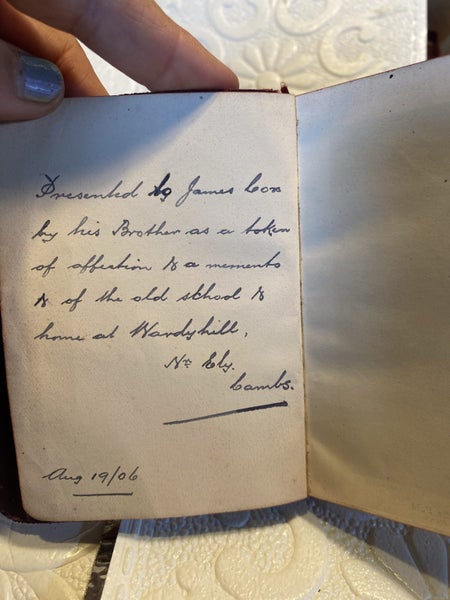 Presented to James Cox
by his Brother as a token
of affection & a memento
& of the old school &
home at Wardyhill,
Nr. Ely.
Cambs.
Aug 19/06